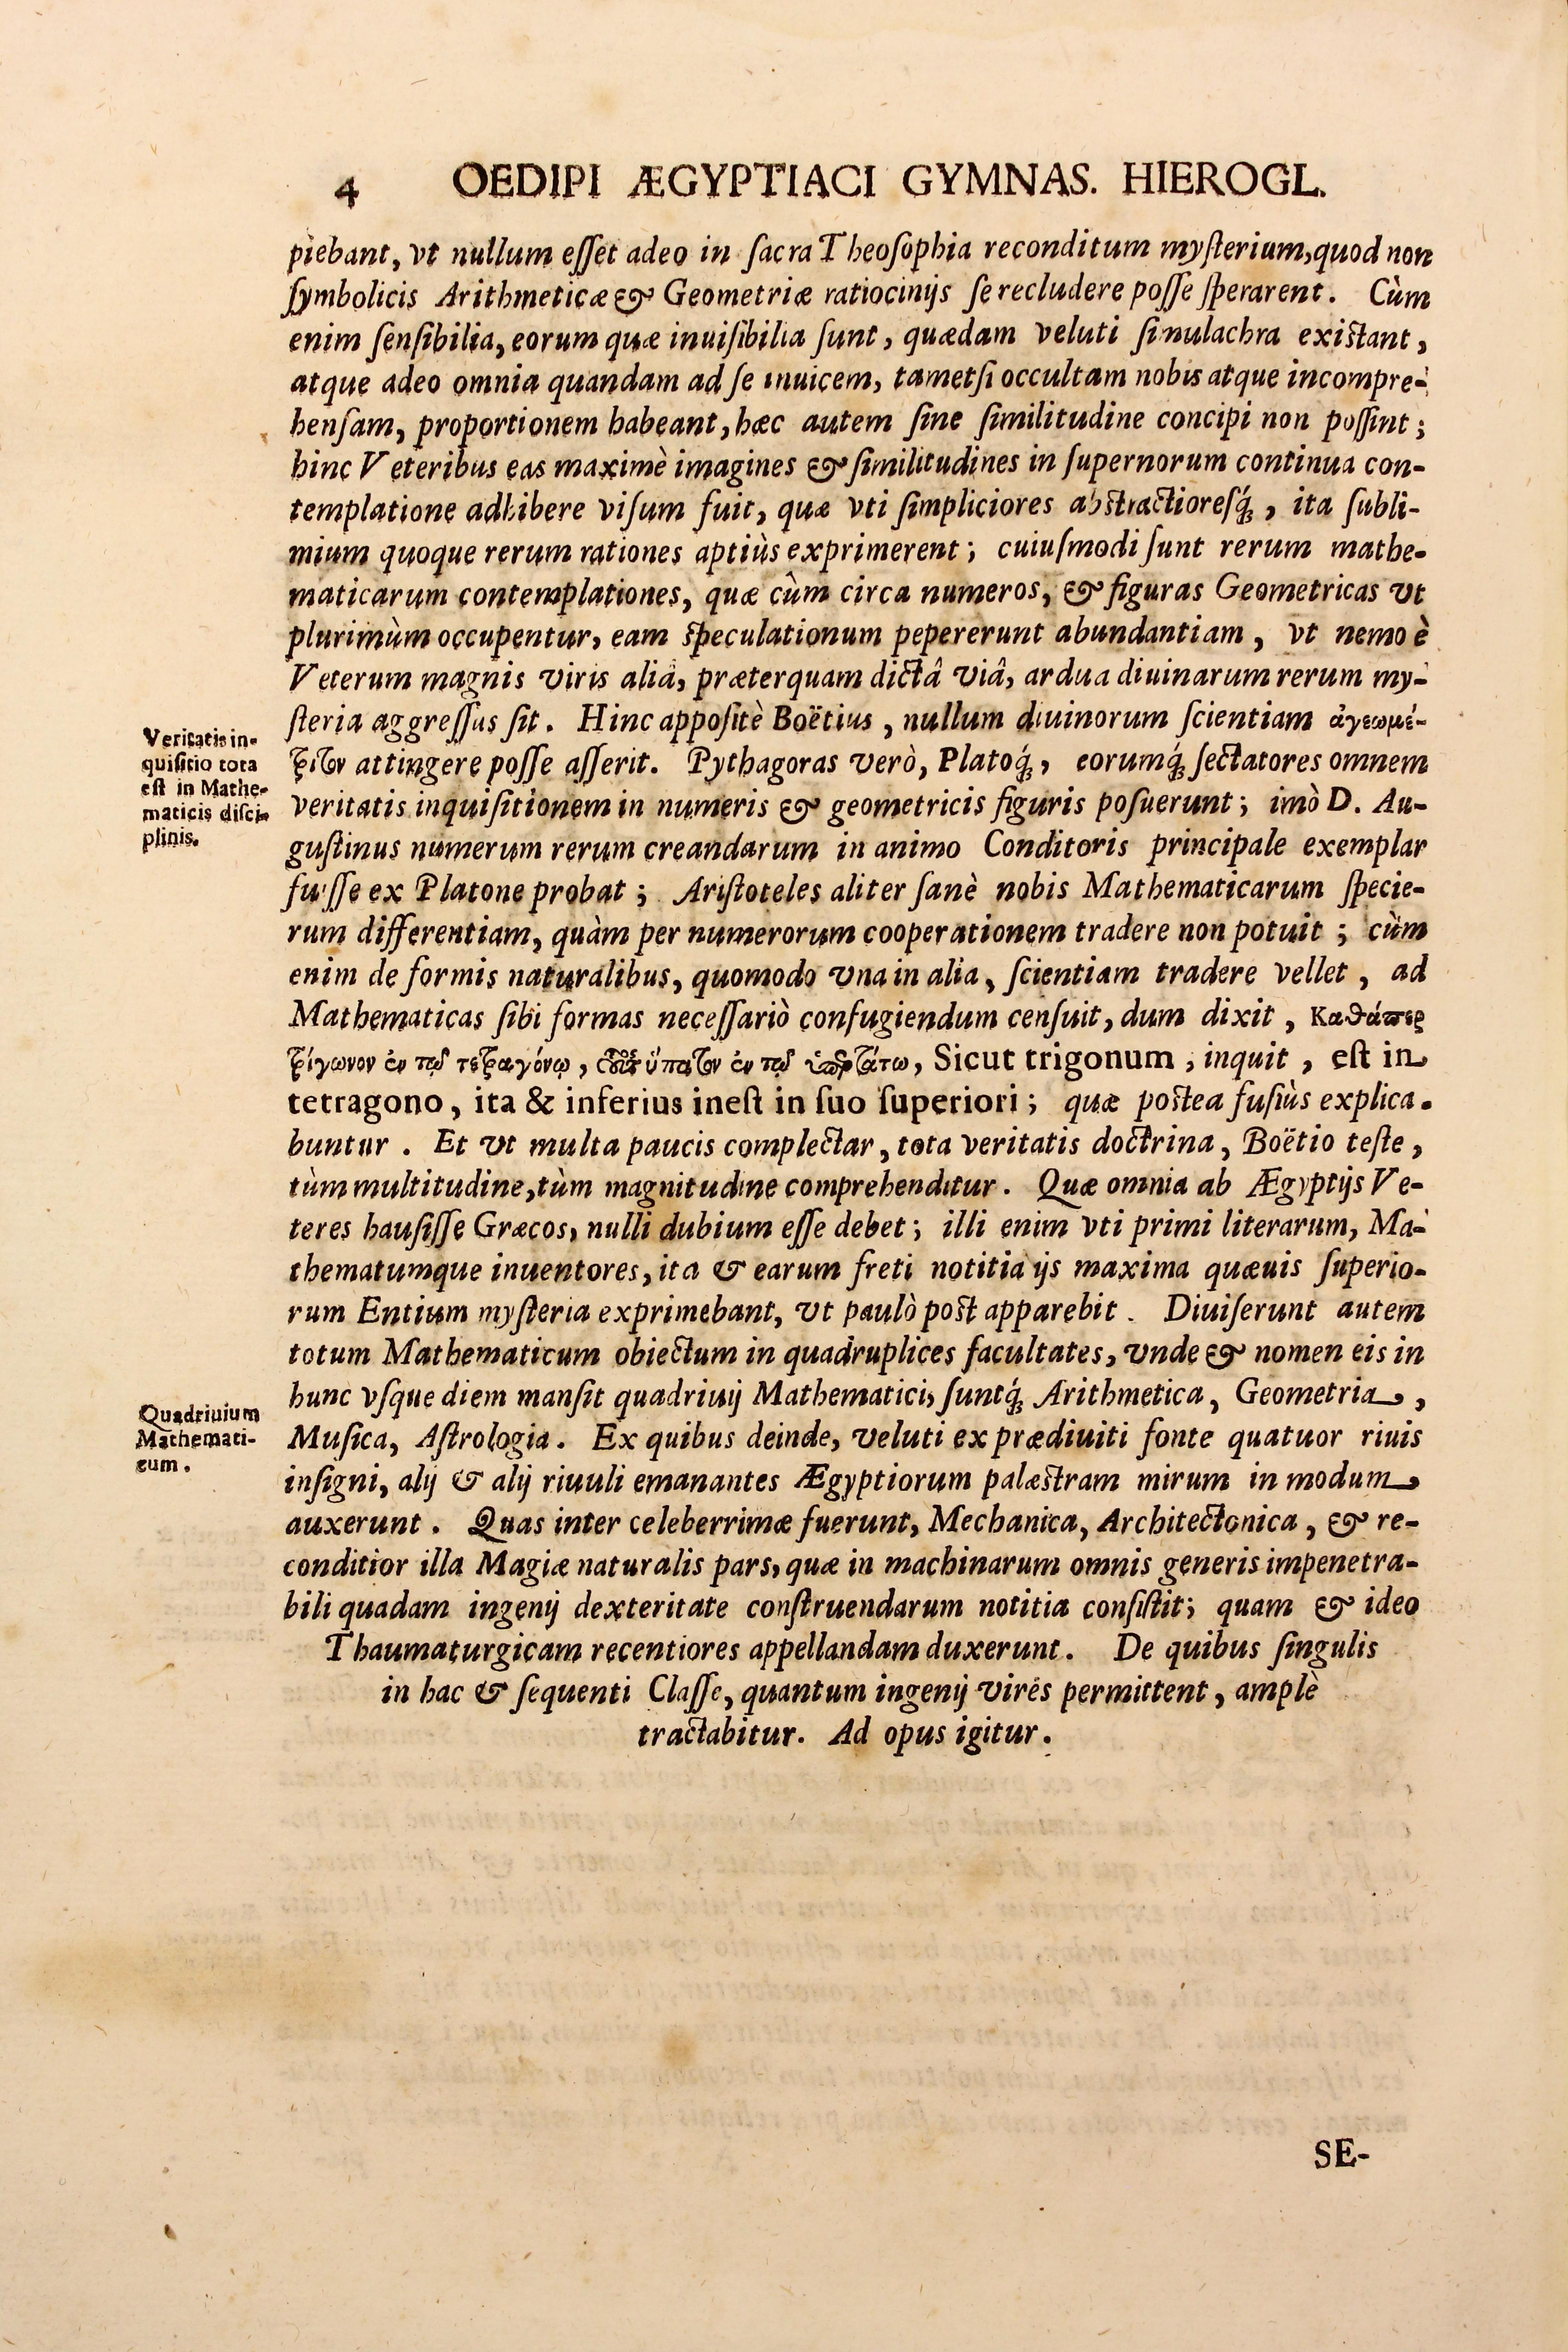 4 OEDIPI ÆGYPTIACI GYMNAS. HIEROGL.
piebant, vt nullum eſſet adeo in ſacra Theoſophia reconditum myſterium, quod non
ſymbolicis Arithmeticæ & Geometriæ ratiocinijs ſe recludere poſſe ſperarent. Cùm
enim ſenſibilia, eorum quæ inuiſibilia ſunt, quædam veluti ſimulachra exiſtant,
atque adeo omnia quandam ad ſe inuicem, tametſi occultam nobis atque incompre-
henſam, proportionem habeant, hæc autem ſine ſimilitudine concipi non poſſint;
hinc Veteribus eas maximè imagines & ſimilitudines in ſupernorum continua con-
templatione adhibere viſum fuit, quæ vti ſimpliciores abſtractioreſq́;, ita ſubli-
mium quoque rerum rationes aptiùs exprimerent; cuiuſmodi ſunt rerum mathe-
maticarum contemplationes, quæ cûm circa numeros, & figuras Geometricas vt
plurimùm occupentur, eam ſpeculationum pepererunt abundantiam, vt nemo è
Veterum magnis viris aliâ, præterquam dictâ viâ, ardua diuinarum rerum my-
ſteria aggreſſus ſit. Hinc appoſitè Boëtius, nullum diuinorum ſcientiam ἀγεωμέ-
Veritatis in-
quiſitio tota
eſt in Mathe-
maticis diſci-
plinis.
τριτον attingere poſſe aſſerit. Pythagoras verò, Platoq́;, eorumq́; ſectatores omnem
veritatis inquiſitionem in numeris & geometricis figuris poſuerunt; imò D. Au-
guſtinus numerum rerum creandarum in animo Conditoris principale exemplar
fuiſſe ex Platone probat; Ariſtoteles aliter ſanè nobis Mathematicarum ſpecie-
rum differentiam, quàm per numerorum cooperationem tradere non potuit; cùm
enim de formis naturalibus, quomodo vna in alia, ſcientiam tradere vellet, ad
Mathematicas ſibi formas neceſſariò confugiendum cenſuit, dum dixit, Καθάπερ
τρίγωνον ἐν τῷ τετραγόνῳ, ὕπατον ἐν τῷ, Sicut trigonum, inquit, eſt in
tetragono, ita & inferius ineſt in ſuo ſuperiori; quæ poſtea fuſiùs explica-
buntur. Et vt multa paucis complectar, tota veritatis doctrina, Boëtio teſte,
tùm multitudine, tùm magnitudine comprehenditur. Quæ omnia ab Ægyptijs Ve-
teres hauſiſſe Græcos, nulli dubium eſſe debet; illi enim vti primi literarum, Ma-
thematumque inuentores, ita & earum freti notitia ijs maxima quæuis ſuperio-
rum Entium myſteria exprimebant, vt paulò poſt apparebit. Diuiſerunt autem
totum Mathematicum obiectum in quadruplices facultates, vnde & nomen eis in
hunc vſque diem manſit quadriuij Mathematici, ſuntq́; Arithmetica, Geometria,
Quadriuium
Mathemati-
cum.
Muſica, Aſtrologia. Ex quibus deinde, veluti ex prædiuiti fonte quatuor riuis
inſigni, alij & alij riuuli emanantes Ægyptiorum palæſtram mirum in modum
auxerunt. Quas inter celeberrimæ fuerunt, Mechanica, Architectonica, & re-
conditior illa Magiæ naturalis pars, quæ in machinarum omnis generis impenetra-
bili quadam ingenij dexteritate conſtruendarum notitia conſiſtit; quam & ideo
Thaumaturgicam recentiores appellandam duxerunt. De quibus ſingulis
in hac & ſequenti Claſſe, quantum ingenij vires permittent, amplè
tractabitur. Ad opus igitur.
SE-